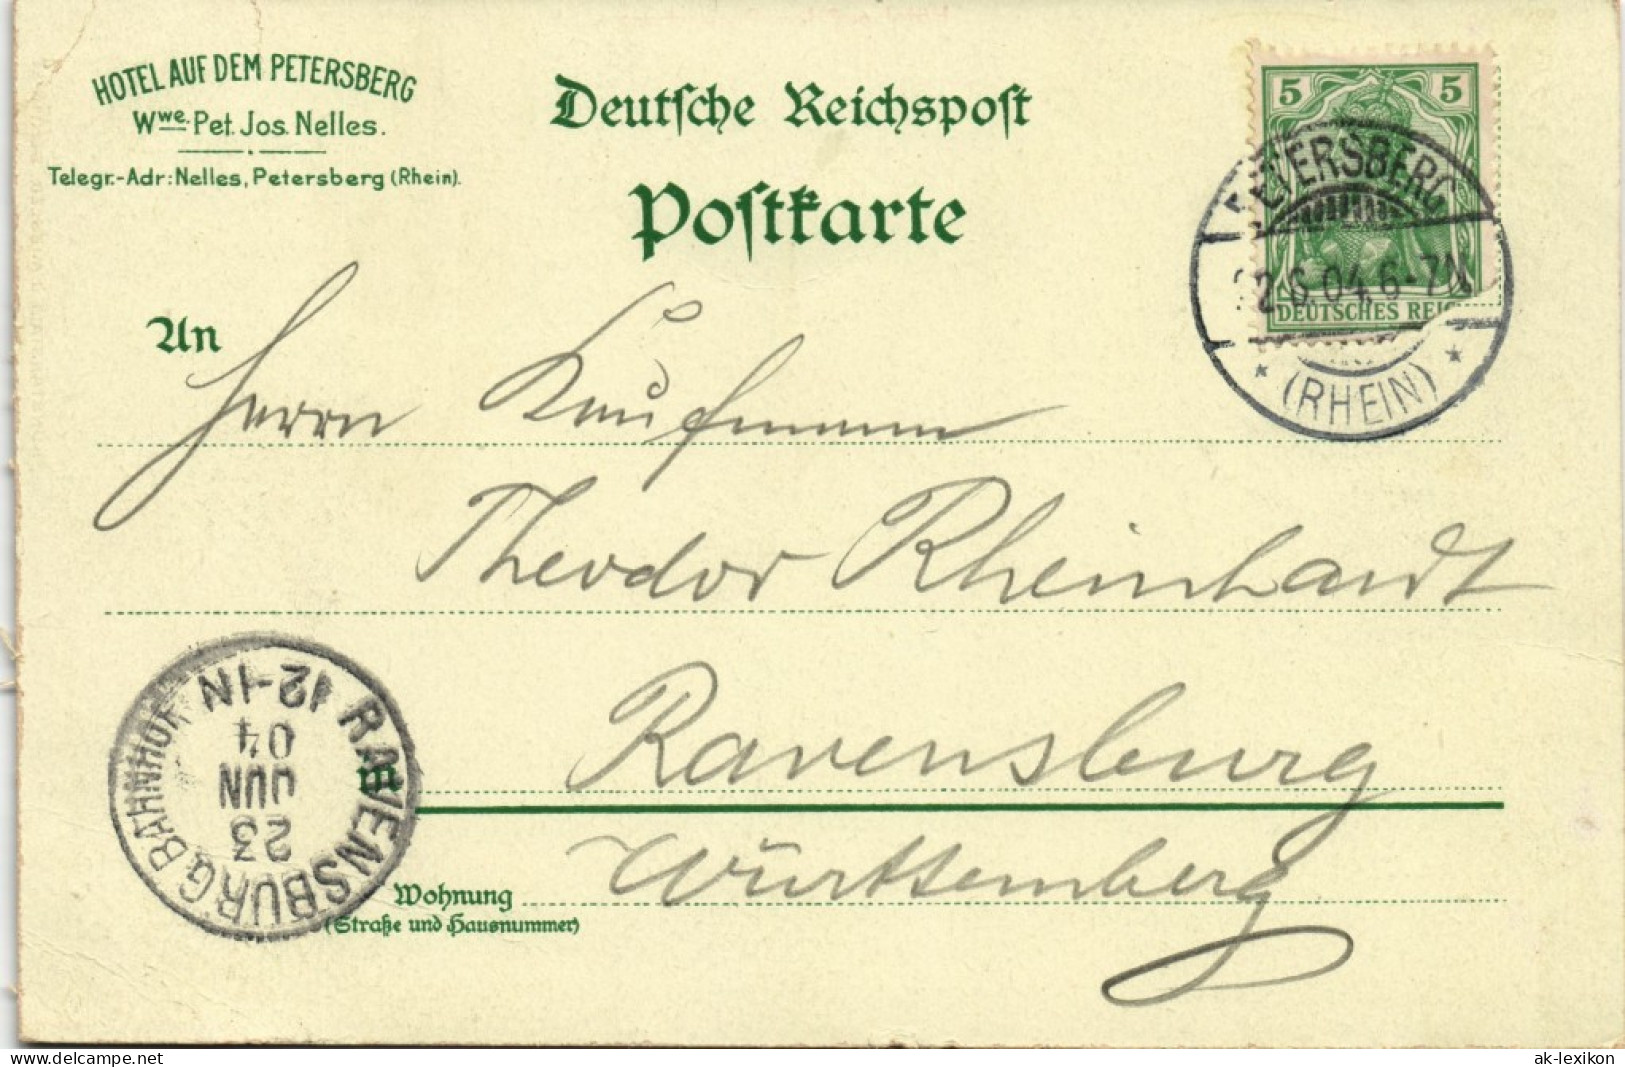 HOTEL AUF DEM PETERSBERG
Wwe. Pet. Jos. Nelles.
Telegr.-Adr: Nelles, Petersberg (Rhein).
Deutsche Reichspost
Postkarte
5 5
DEUTSCHES REICH
PETERSBERG
2.6.04. 6-7N
(RHEIN)
An
Herrn Kaufmann
Theodor Rheinhardt
Ravensburg
Württemberg
RAVENSBURG BAHNHOF
23
JUN
04
12-1N
in
Wohnung
(Straße und Hausnummer)
delcampe.net
ak-lexikon